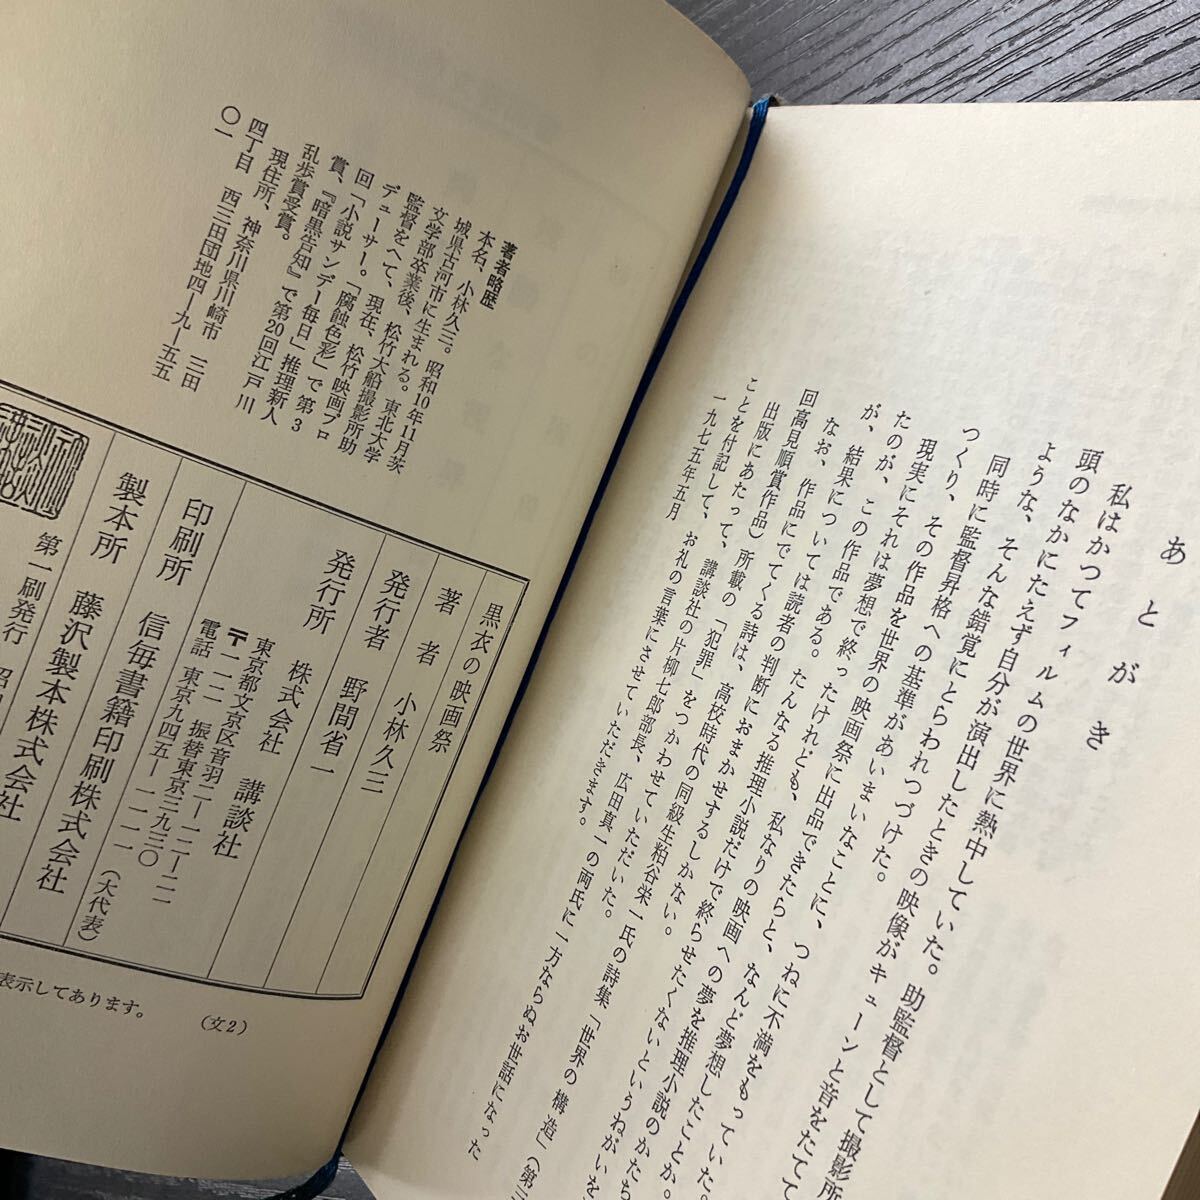 あとがき
私はかつてフィルムの世界に熱中していた。助監督として撮影所
頭のなかにたえず自分が演出したときの映像がキューンと音をたてて
ような、そんな錯覚にとらわれつづけた。
同時に監督昇格への基準があいまいなことに、つねに不満をもっていた。
つくり、その作品を世界の映画祭に出品できたらと、なんど夢想したことか。
現実にそれは夢想で終ったけれども、私なりの映画への夢を推理小説のかたち
たのが、この作品である。たんなる推理小説だけで終らせたくないというねがいを
が、結果については読者の判断におまかせするしかない。
なお、作品にでてくる詩は、高校時代の同級生粕谷栄一氏の詩集「世界の構造」（第三
回高見順賞作品）所載の「犯罪」をつかわせていただいた。
出版にあたって、講談社の片柳七郎部長、広田真一の両氏に一方ならぬお世話になった
ことを付記して、お礼の言葉にさせていただきます。
一九七五年五月
著者略歴
本名、小林久三。昭和10年11月茨
城県古河市に生まれる。東北大学
文学部卒業後、松竹大船撮影所助
監督をへて、現在、松竹映画プロ
デューサー。「腐蝕色彩」で第3
回「小説サンデー毎日」推理新人
賞、『暗黒告知』で第20回江戸川
乱歩賞受賞。
現住所、神奈川県川崎市 三田
四丁目 西三田団地四―九―五五
〇一
黒衣の映画祭
著者 小林久三
発行者 野間省一
発行所 株式会社 講談社
東京都文京区音羽二―一二―二一
〒一一二 振替東京三九三〇
電話 東京九四五―一一一一（大代表）
印刷所 信毎書籍印刷株式会社
製本所 藤沢製本株式会社
第一刷発行 昭
表示してあります。
（文2）